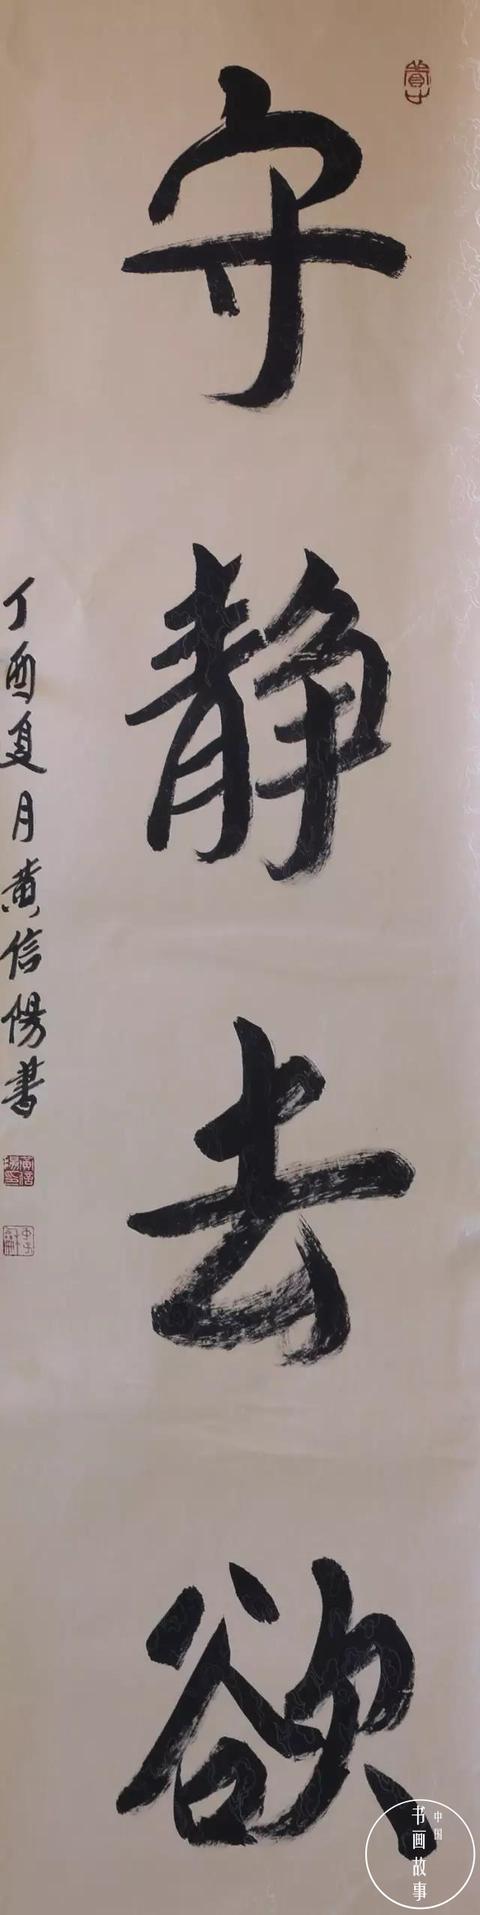 守静去欲
丁酉夏月黄信阳书
黄信阳印
中国
书画故事